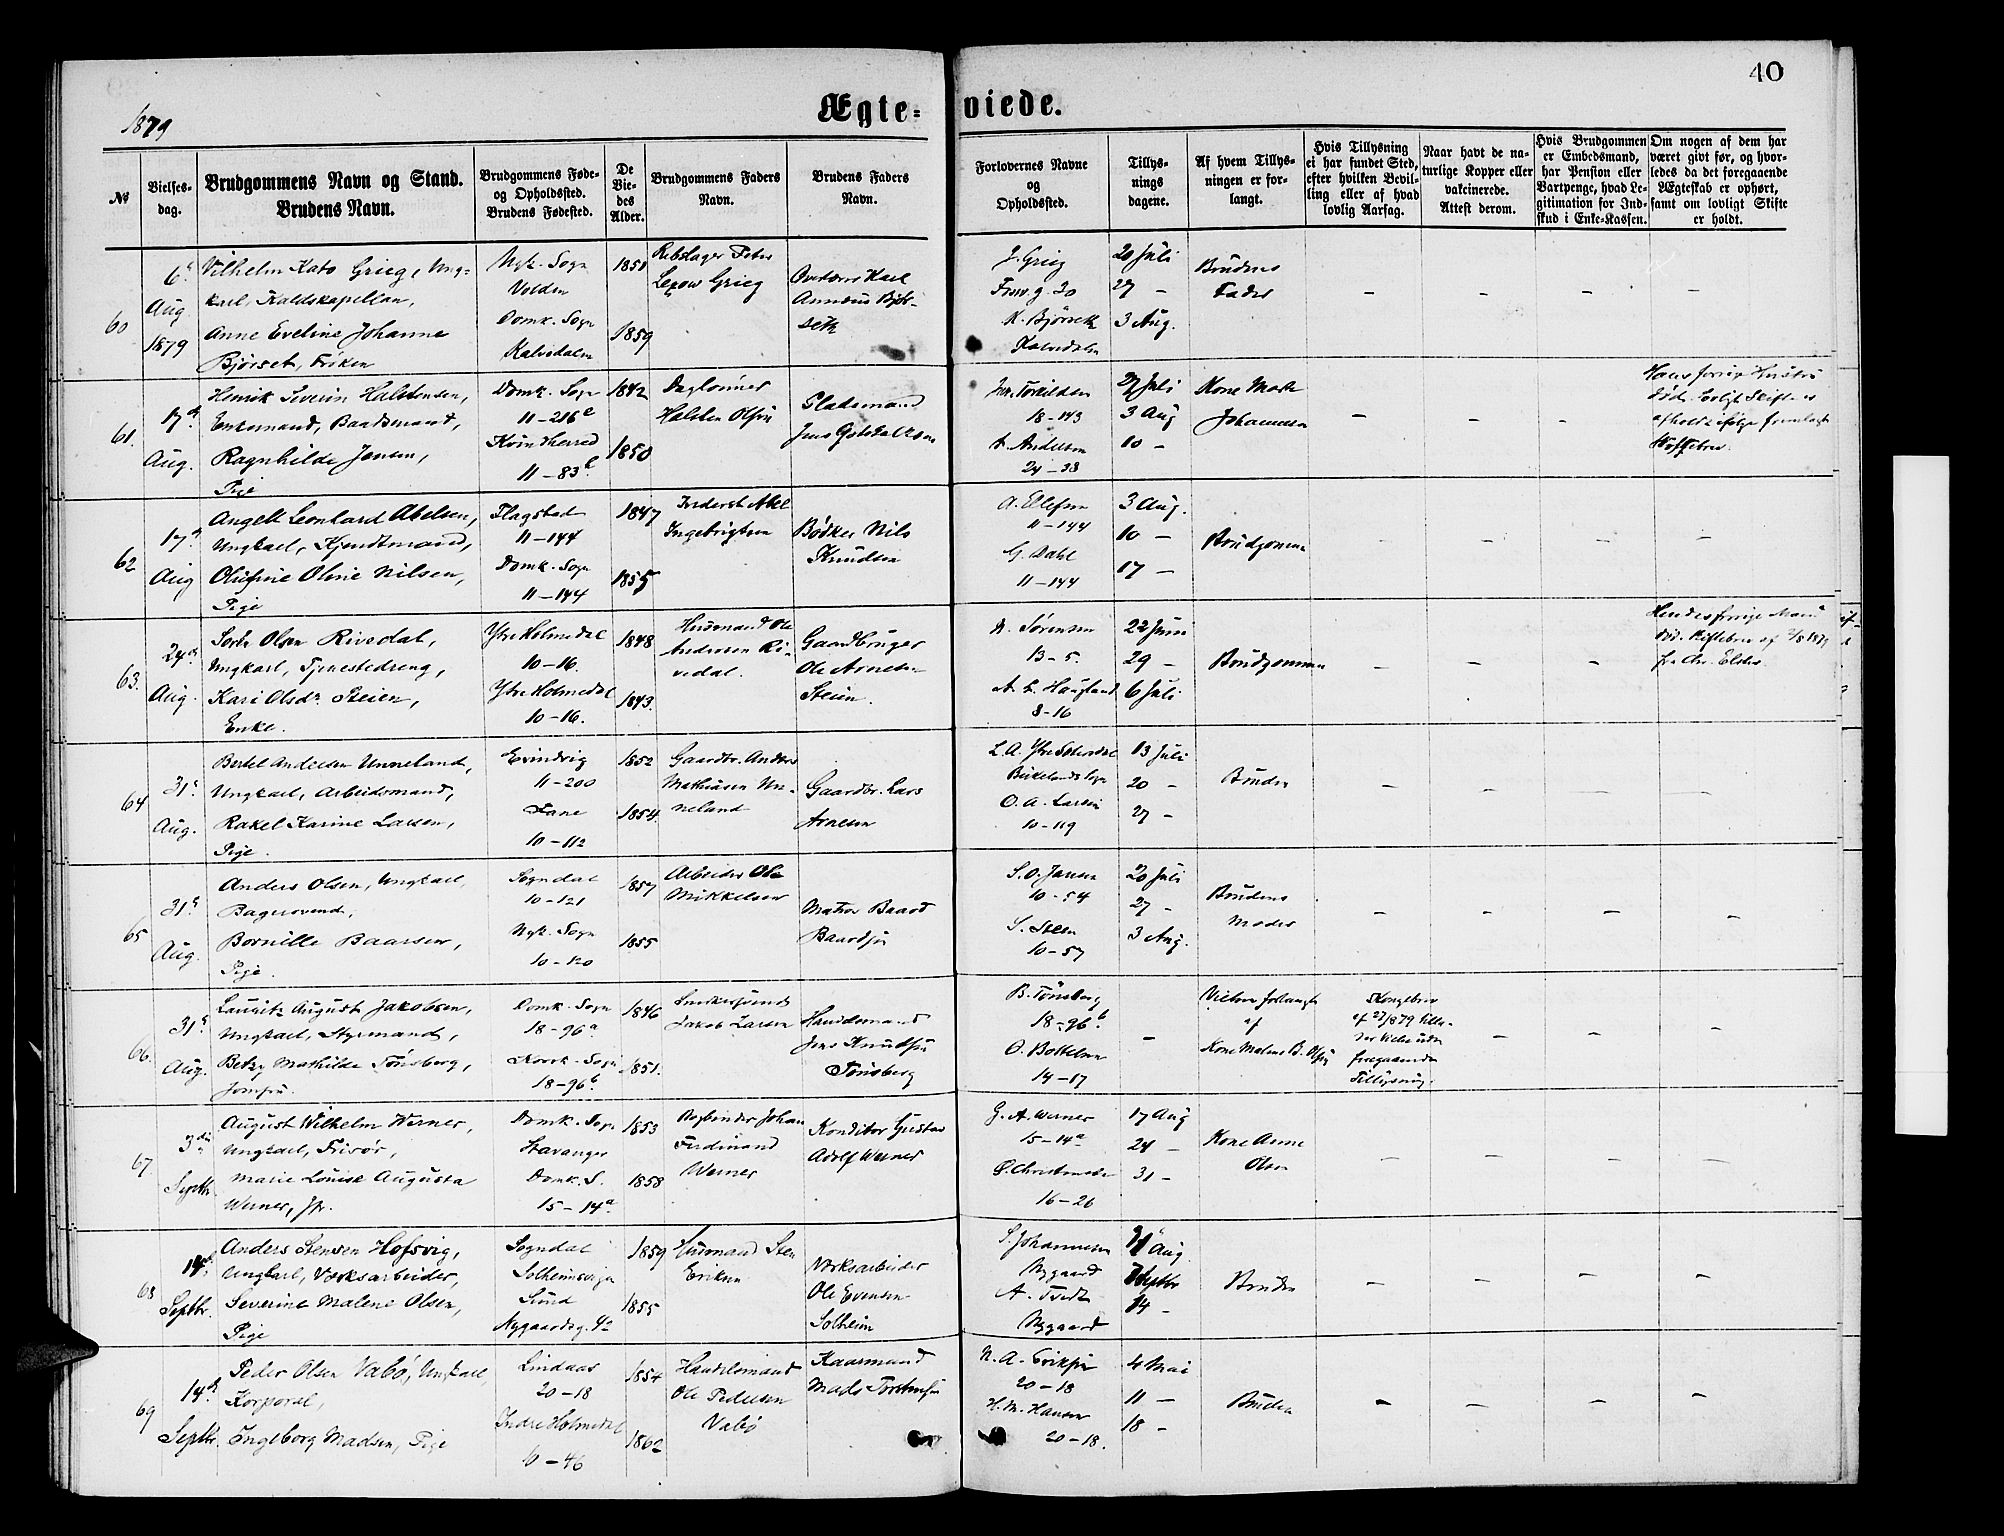 40
1879
Ægte-viede.
№
Vielses-
dag.
Brudgommens Navn og Stand.
Brudens Navn.
Brudgommens Føde-
og Opholdssted.
Brudens Fødested.
De
Vie-
des
Alder.
Brudgommens Faders
Navn.
Brudens Faders
Navn.
Forlovernes Navne
og
Opholdssted.
Tillys-
nings
dagene.
Af hvem Tillys-
ningen er for-
langt.
Hvis Tillysning
ei har fundet Sted,
efter hvilken Bevil-
ling eller af hvad
lovlig Aarsag.
Naar havt de na-
turlige Kopper eller
vakcinerede.
Attest derom.
Hvis Brudgommen
er Embedsmand,
har Pension eller
Vartpenge, hvad Le-
gitimation for Ind-
skud i Enke-Kassen.
Om nogen af dem har
været givt før, og hvor-
ledes da det foregaaende
Ægteskab er ophørt,
samt om lovligt Skifte
er holdt.
60
6 Aug 1879
Vilhelm Kato Grieg, Ung-
karl, Kaldskapellan,
Anne Eveline Johanne
Bjørset, Frøken
Nyk. Sogn
Volden
Domk. Sogn
Kalvedalen
1851
1859
Rebslager Peter
Lexow Grieg
J. Grieg
K. Bjørseth
Kalvedalen
20 Juli
27 –
3 Aug.
Brudens
Fader
– – – –
61.
17 Aug.
Henrik Severin Halstensen,
Enkemand, Baadsmand,
Ragnhilde Jensen,
Pige
Domk. Sogn
11–216
Kvindherred
11–83
1842
1850
Daglønner
Halsten Olsen
Pladsmand
18–143
A. Andersen
24–38
27 Juli
3 Aug
10 –
Kone Marte
Johannesen
– – –
Hans forrige Hustru
død.
62
17 Aug
Angell Leonhard Abelsen,
Ungkarl, Kjendtmand,
Olufine Oline Nilsen,
Pige
Flagstad
11–144
Domk. Sogn
11–144
1847
1855
Inderst Abel
Ingebrigtsen
Bødker Nils
Knudsen
A. Ellefsen
11–144
G. Dahl
11–144
3 Aug.
10 –
17 –
Brudgommen
– – – –
63.
24 Aug.
Olsen Rivedal,
Ungkarl, Tjenestedreng,
Kari Olsdr Steien,
Enke.
Ytre Holmedal
10–16.
Ytre Holmedal
10–16.
1848
1843.
Husmand Ole
Andersen Ri-
vedal.
Gaardbruger
Ole Arnesen
Steien.
N. Sørensen
13–5.
Haugland
8–16
22 Juni
29 –
6 Juli
Brudgommen
– – –
Hendes forrige Mand
død.
64
31 Aug.
Bertel Andersen Unneland,
Ungkarl, Arbeidsmand,
Rakel Karine Larsen,
Pige.
Evindvig
11–200
Fane
10–112
1852
1854.
Gaardbr. Anders
Mathiasen Un-
neland
Gaardbr. Lars
Arnesen
O. A. Larsen
10–119
13 Juli
20 –
27 –
Bruden
– – – –
65
31 Aug.
Anders Olsen, Ungkarl,
Bagersvend,
Bornille Baarsen,
Pige.
Sogndal
10–121
Nyk. Sogn
10–120
1857
1855
Arbeider Ole
Mikkelsen
Matros Baard
Baardsen
S. O. Jansen
10–54
S. Steen
10–57
20 Juli
27 –
3 Aug.
Brudens
Moder
– – – –
66.
31 Aug.
Lauritz August Jakobsen,
Ungkarl, Styrmand,
Betzy Mathilde Tønsberg,
Jomfru.
Domk. Sogn
18–96a
Korsk. Sogn
18–96b.
1846
1851.
Snedkersvend
Jakob Larsen
Handelsmand
Jens Knudsen
Tønsberg
B. Tønsberg
18–96b
O. Bottelsen
14–17
–
Vielsen forlangt
af
Kone Malene B. Olsen
Kongebrev
foregaaende
Tillysning.
– – –
67.
3die Septbr.
August Wilhelm Werner,
Ungkarl, Frisør,
Marie Louise Augusta
Werner, Jfr.
Domk. Sogn
Stavanger
Domk. S.
15–14a
1853
1858
Bogbinder Johan
Ferdinand
Werner
Konditor Gustav
Adolf Werner
G. A. Werner
15–14a
16–26
17 Aug
24 –
31 –
Kone Anne
Olsen
– – – –
68
14 Septbr.
Anders Stensen Hofsvig,
Ungkarl, Værksarbeider,
Severine Malene Olsen,
Pige
Sogndal
Solheimsvigen
Sund
Nygaardsg. 42
1859
1855
Husmand Sten
Eriksen
Værksarbeider
Ole Evensen
Solheim
S. Johannesen
Nygaard
A. Tvedt
Nygaard
31 Aug
7 Septbr
14 –
Bruden
– – – –
69
14 Septbr.
Peder Olsen Vabø, Ungkarl,
Korporal,
Ingeborg Madsen, Pige
Lindaas
20–18
Indre Holmedal
10–46
1854
1862
Handelsmand
Ole Pedersen
Vabø
Kaarmand
Mads Torstensen
N. A. Eriksen
20–18
H. M. Hansen
20–18.
4 Mai
11 –
18 –
Bruden
– – – –